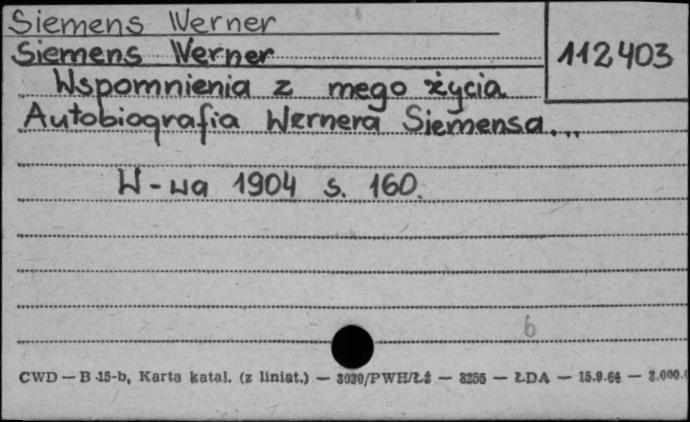 Siemens Werner
Siemens Werner
112403
Wspomnienia z mego życia
Autobiografia Wernera Siemensa...
W-wa 1904 s. 160.
6
CWD — B 15-b, Karta katal. (z liniat.) — 3030/PWH/Łź — 3255 — ŁDA — 15.9.64 —